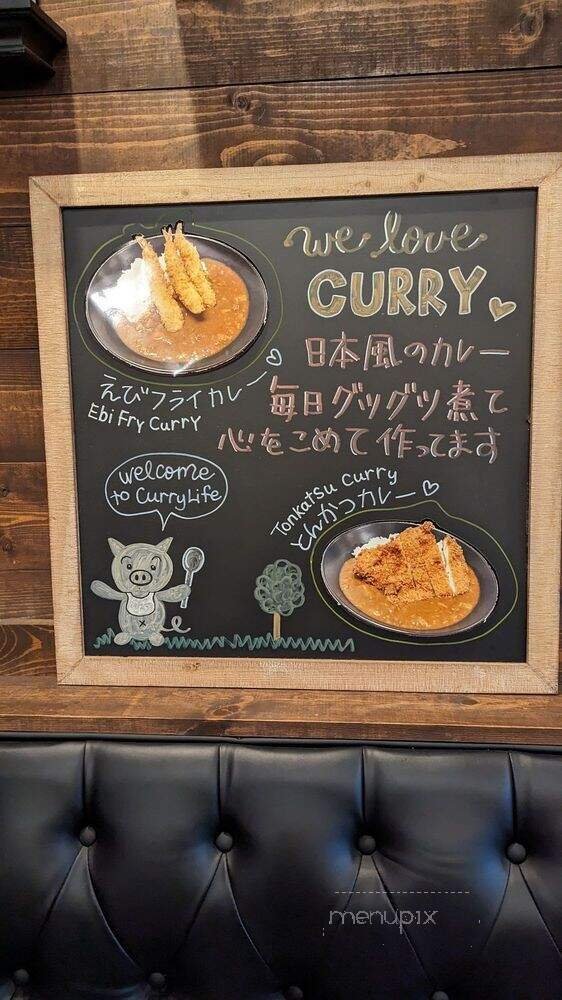 we love
CURRY
日本風のカレー
毎日グツグツ煮て
心をこめて作ってます
えびフライカレー
Ebi Fry Curry
welcome
to CurryLife
Tonkatsu Curry
とんかつカレー
menupix